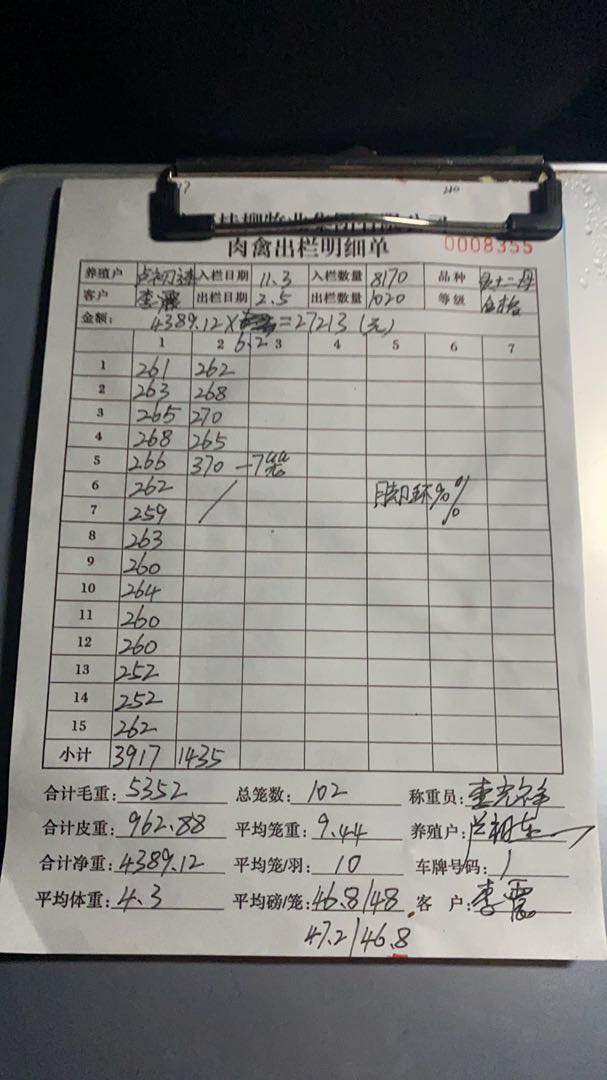 肉禽出栏明细单 0008355
养殖户 入栏日期 11.3 入栏数量 8170 品种
客户 李震 出栏日期 2.5 出栏数量 1020 等级
金额: 4389.12× =27213(元)
6.2
1 2 3 4 5 6 7
1 261 262
2 263 268
3 265 270
4 268 265
5 266 370 -7
6 262
7 259 /
8 263
9 260
10 264
11 260
12 260
13 252
14 252
15 262
小计 3917 1435
合计毛重: 5352 总笼数: 102 称重员:
合计皮重: 962.88 平均笼重: 9.44 养殖户:
合计净重: 4389.12 平均笼/羽: 10 车牌号码: 1
平均体重: 4.3 平均磅/笼: 46.8/48 客户: 李震
47.2/46.8